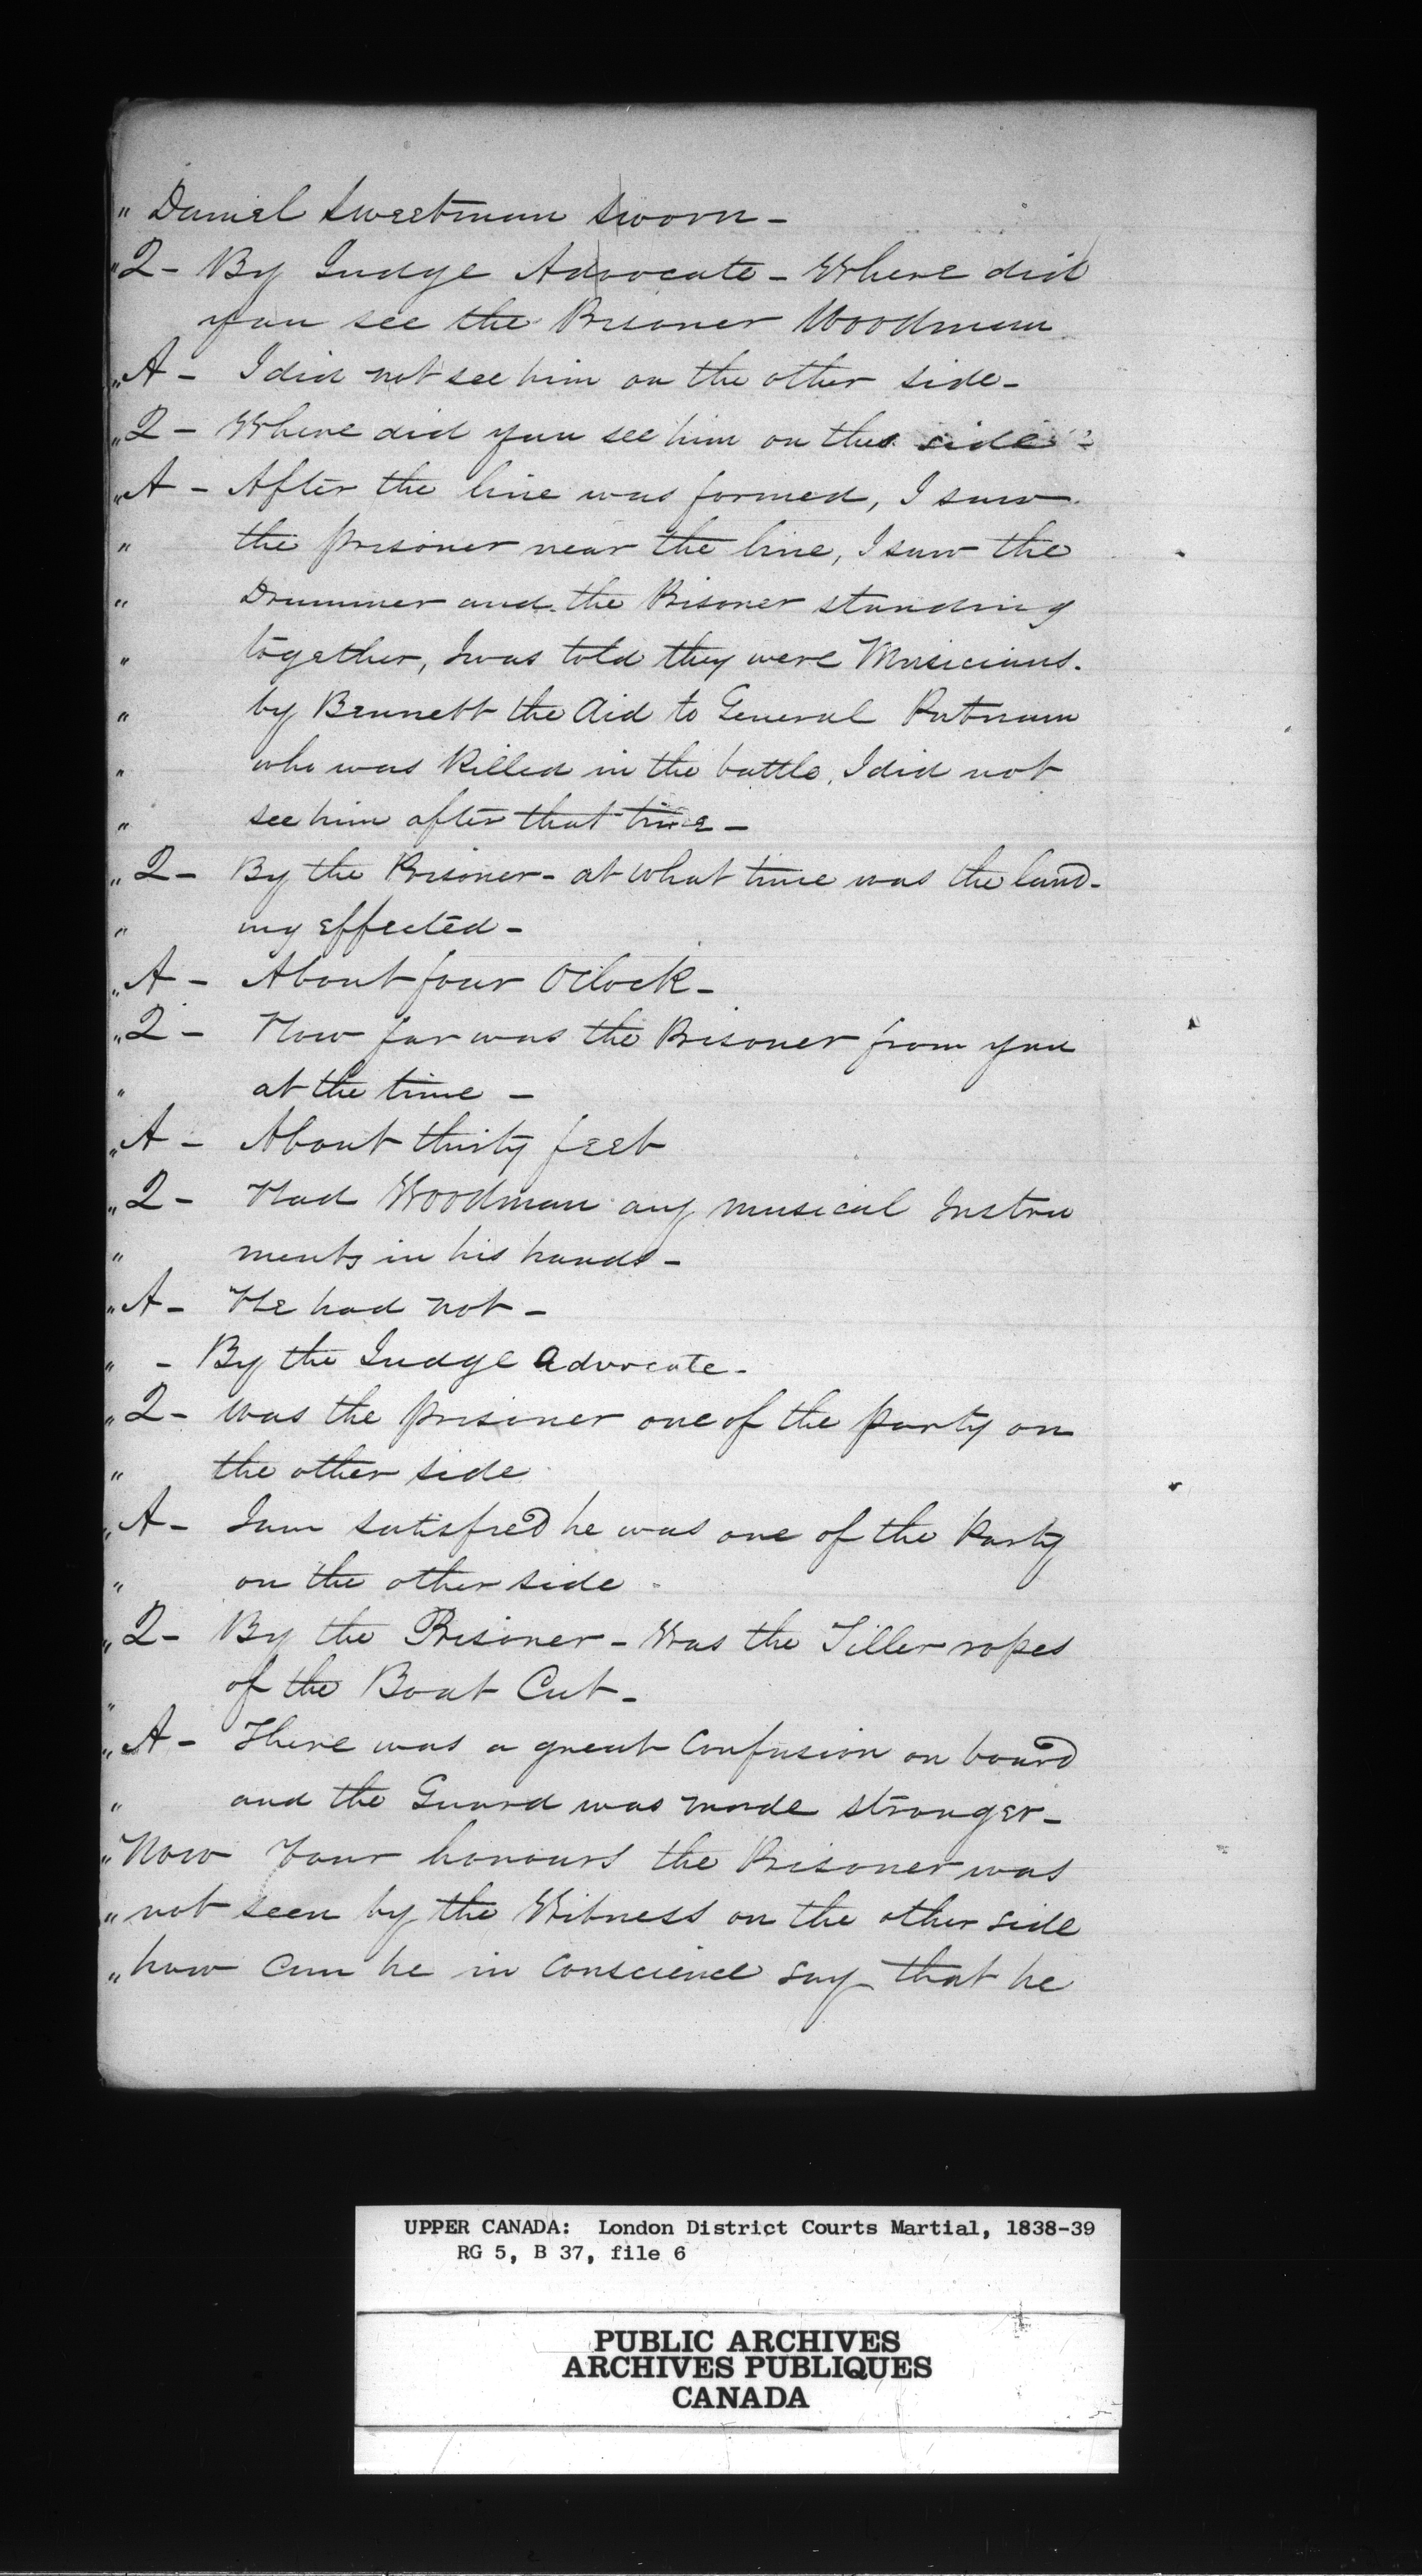 " Daniel Sweetman Sworn -
" Q - By Judge Advocate - Where did
you see the Prisoner Woodman
" A - I did not see him on the other side -
" Q - Where did you see him on this side -
" A - After the line was formed, I saw
" the prisoner near the line, I saw the
" Drummer and the Prisoner standing
" together, I was told they were Musicians.
" by Bennett the Aid to General Putnam
" who was killed in the battle, I did not
" see him after that time -
" Q - By the Prisoner - at what time was the land-
" ing effected -
" A - About four OClock -
" Q - How far was the Prisoner from you
" at the time -
" A - About thirty feet
" Q - Had Woodman any musical Instru
" ments in his hands -
" A - He had not -
" - By the Judge Advocate -
" Q - Was the prisoner one of the party on
" the other side
" A - I am satisfied he was one of the Party
" on the other side -
" Q - By the Prisoner - Was the Tiller ropes
" of the Boat Cut -
" A - There was a great Confusion on board
" and the Guard was made stronger -
" Now Your honours the Prisoner was
" not seen by the Witness on the other side
" how Can he in Conscience say that he
UPPER CANADA: London District Courts Martial, 1838-39
RG 5, B 37, file 6
PUBLIC ARCHIVES
ARCHIVES PUBLIQUES
CANADA